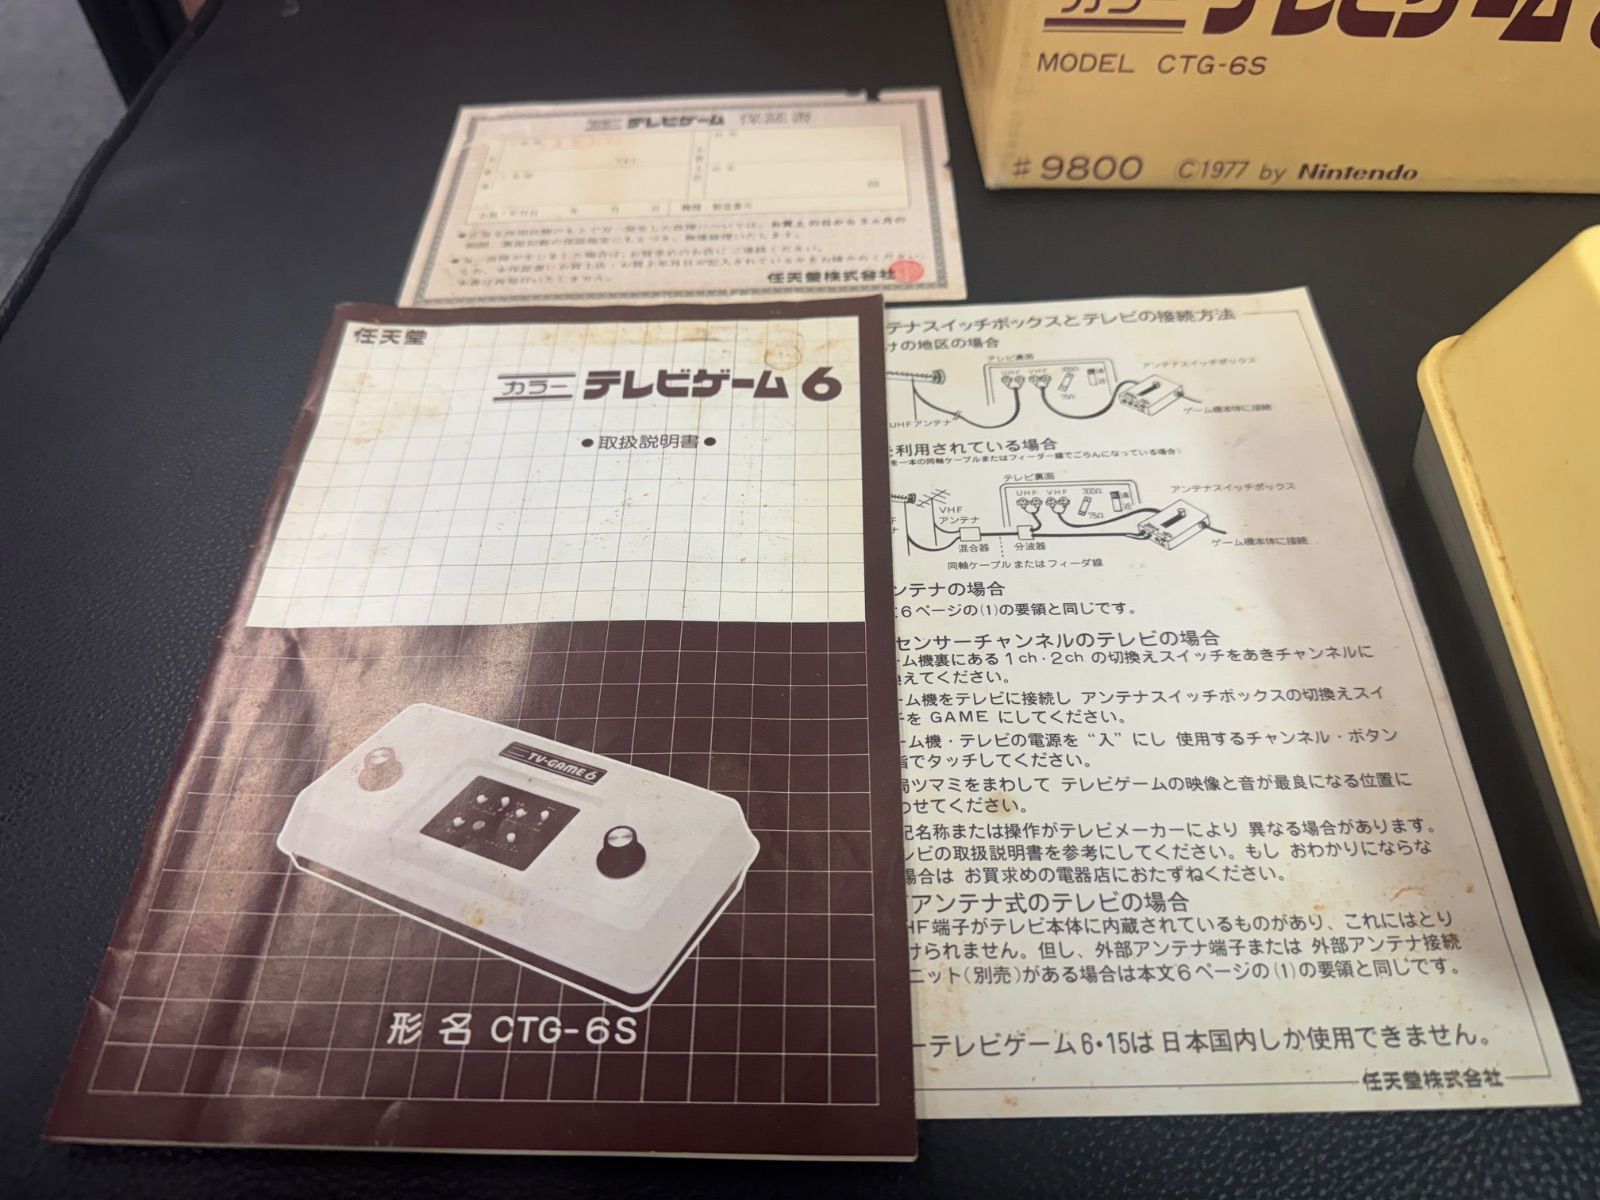 カラー テレビゲーム
MODEL CTG-6S
#9800 ©1977 by Nintendo
カラー テレビゲーム 保証書
任天堂株式会社
任天堂
カラー テレビゲーム 6
●取扱説明書●
TV-GAME 6
形名 CTG-6S
テナスイッチボックスとテレビの接続方法
けの地区の場合
テレビ裏面
アンテナスイッチボックス
UHF VHF
300Ω
75Ω
UHFアンテナ
ゲーム機本体に接続
を利用されている場合
を一本の同軸ケーブルまたはフィーダー線でごらんになっている場合)
テレビ裏面
アンテナスイッチボックス
UHF VHF
300Ω
75Ω
VHF
アンテナ
混合器
分波器
ゲーム機本体に接続
同軸ケーブルまたはフィーダ線
ンテナの場合
6ページの(1)の要領と同じです。
センサーチャンネルのテレビの場合
ム機裏にある1ch・2chの切換えスイッチをあきチャンネルに
えてください。
ーム機をテレビに接続し アンテナスイッチボックスの切換えスイ
チを GAME にしてください。
ーム機・テレビの電源を“入”にし 使用するチャンネル・ボタン
指でタッチしてください。
局ツマミをまわして テレビゲームの映像と音が最良になる位置に
わせてください。
記名称または操作がテレビメーカーにより 異なる場合があります。
レビの取扱説明書を参考にしてください。もし おわかりにならな
場合は お買求めの電器店におたずねください。
アンテナ式のテレビの場合
HF端子がテレビ本体に内蔵されているものがあり、これにはとり
けられません。但し、外部アンテナ端子または 外部アンテナ接続
ニット(別売)がある場合は本文6ページの(1)の要領と同じです。
ーテレビゲーム6・15は 日本国内しか使用できません。
任天堂株式会社